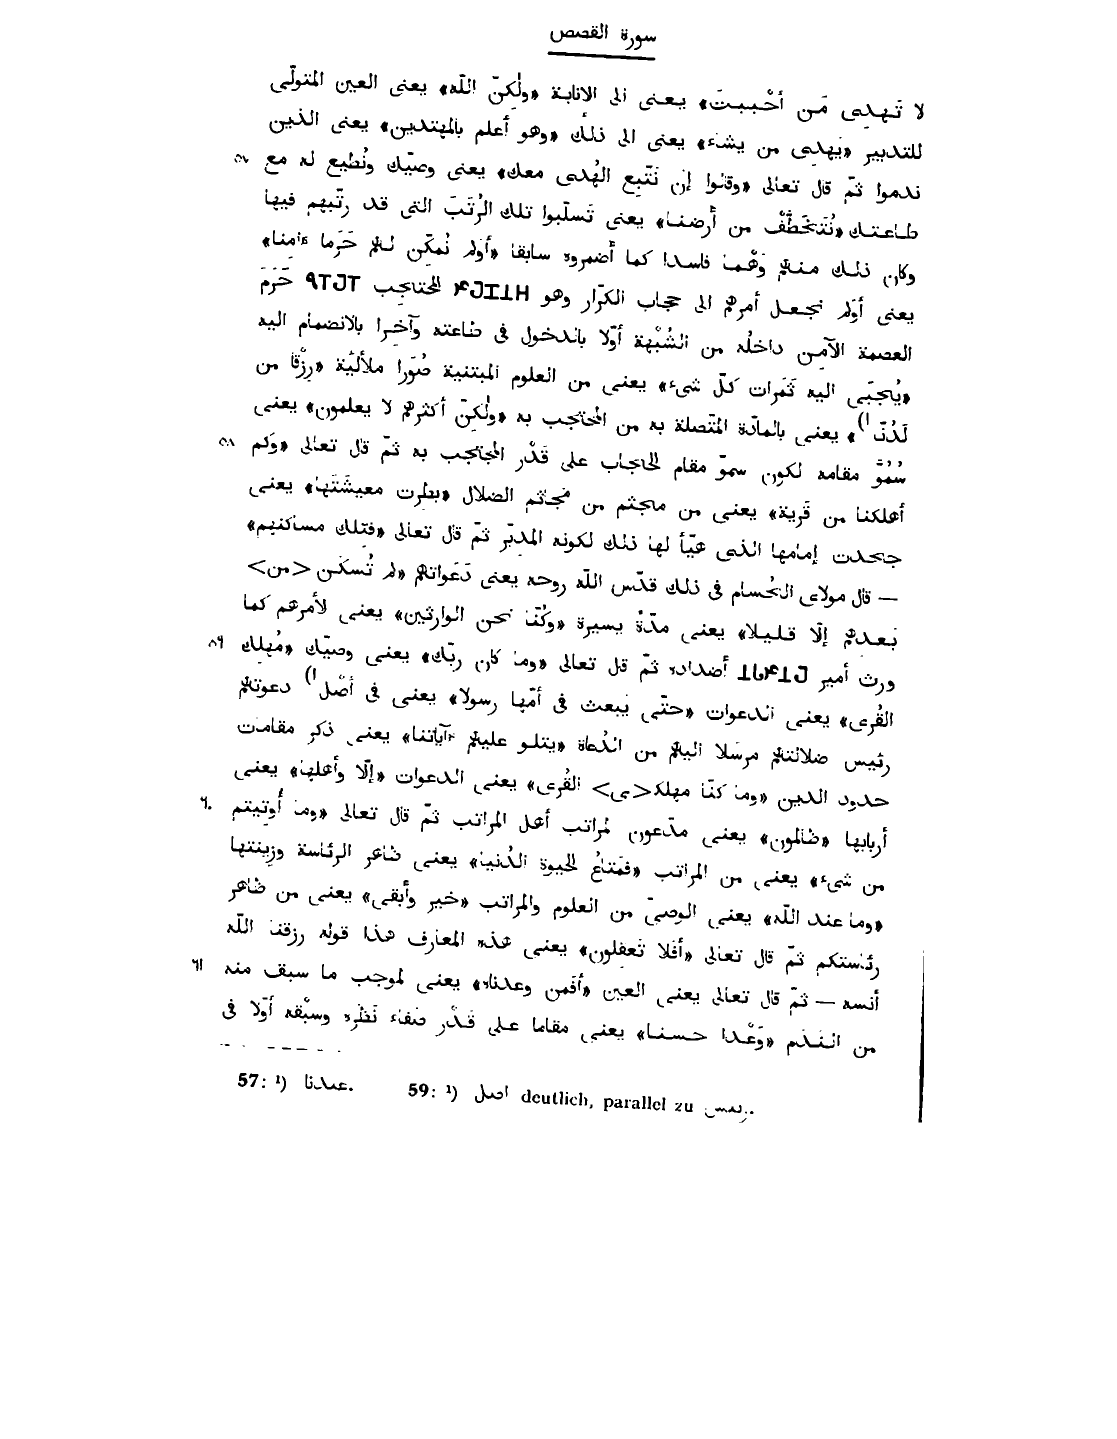 سورة القصص
لا تَهدِى مَن أحْببتَ» يعنى الى الانابة «ولٰكِنّ اللّه» يعنى العين المتولّى
للتدبير «يَهدِى من يشاء» يعنى الى ذلك «وهو أعلم بالمهتدين» يعنى الذين
ندموا ثمّ قال تعالى «وقالوا إن نَتّبِع الهُدى معك» يعنى وصيّك ونُطيع له مع ٥٧
طاعتك «نُتَخَطَّفْ من أرضنا» يعنى تَسلّبوا تلك الرُتَبَ التى قد رتّبهم فيها
وكان ذلك منهم وَهْما فاسدا كما أضمروه سابقا «أولم نُمكّن لهم حَرَما ءامنا»
يعنى أولم نجعل أمرهم الى حجاب الكرّار وهو المحتاجب حَرَمَ
العصمة الآمِن داخلُه من الشُبْهة أوّلا بالدخول فى طاعته وآخِرا بالانضمام اليه
«يُجبَى اليه ثَمَرات كلّ شىء» يعنى من العلوم المبتنية صُوَرا ملأئيّة «رِزْقا من
لَدُنّا ¹)» يعنى بالمادّة المتّصلة به من المحتجب به «ولٰكِنّ أكثرهم لا يعلمون» يعنى
سُمُوَّ مقامه لكون سموّ مقام الحاجاب على قَدْر المحتجب به ثمّ قال تعالى «وَكم ٥٨
أهلكنا من قَرية» يعنى من مجثم من مَجاثم الضلال «بطرت معيشَتَها» يعنى
جحدت إمامها الذى هيّأ لها ذلك لكونه المدبّر ثمّ قال تعالى «فتلك مساكنهم»
— قال مولاى الحُسام فى ذلك قدّس اللّه روحه يعنى دَعَواتهم «لم تُسكَن <من>
بَعدهم إلّا قليلا» يعنى مدّةً يسيرة «وكُنّا نحن الوارثين» يعنى لأمرهم كما
ورث أمير أضداده ثمّ قال تعالى «وما كان ربّك» يعنى وصيّك «مُهلك ٥٩
القُرى» يعنى الدعوات «حتّى يَبعث فى أمّها رسولا» يعنى فى أصْل ¹) دعوتهم
رئيس ضلالتهم مرسَلا اليهم من الدُعاة «يتلو عليهم ءآياتنا» يعنى ذكر مقامات
حدود الدين «وما كنّا مهلكـ<ـى> القُرى» يعنى الدعوات «إلّا وأهلها» يعنى
أربابها «ظالمون» يعنى مدّعون لمراتب أهل المراتب ثمّ قال تعالى «وما أُوتيتم ٦٠
من شىء» يعنى من المراتب «فمَتاعُ الحيوة الدُنيا» يعنى ظاهر الرئاسة وزينتها
«وما عند اللّه» يعنى الوصىّ من العلوم والمراتب «خير وأبقى» يعنى من ظاهر
رئاستكم ثمّ قال تعالى «أفلا تَعقلون» يعنى هذه المعارف هذا قوله رزقنا اللّه
أنسه — ثمّ قال تعالى يعنى العين «أفَمن وعدناه» يعنى لموجب ما سبق منه ٦١
من القدم «وَعْدا حسنا» يعنى مقاما على قَدْر صفاء نَظَره وسبْقه أوّلا فى
57: ¹) عبدنا. 59: ¹) اصل deutlich, parallel zu رىىس.